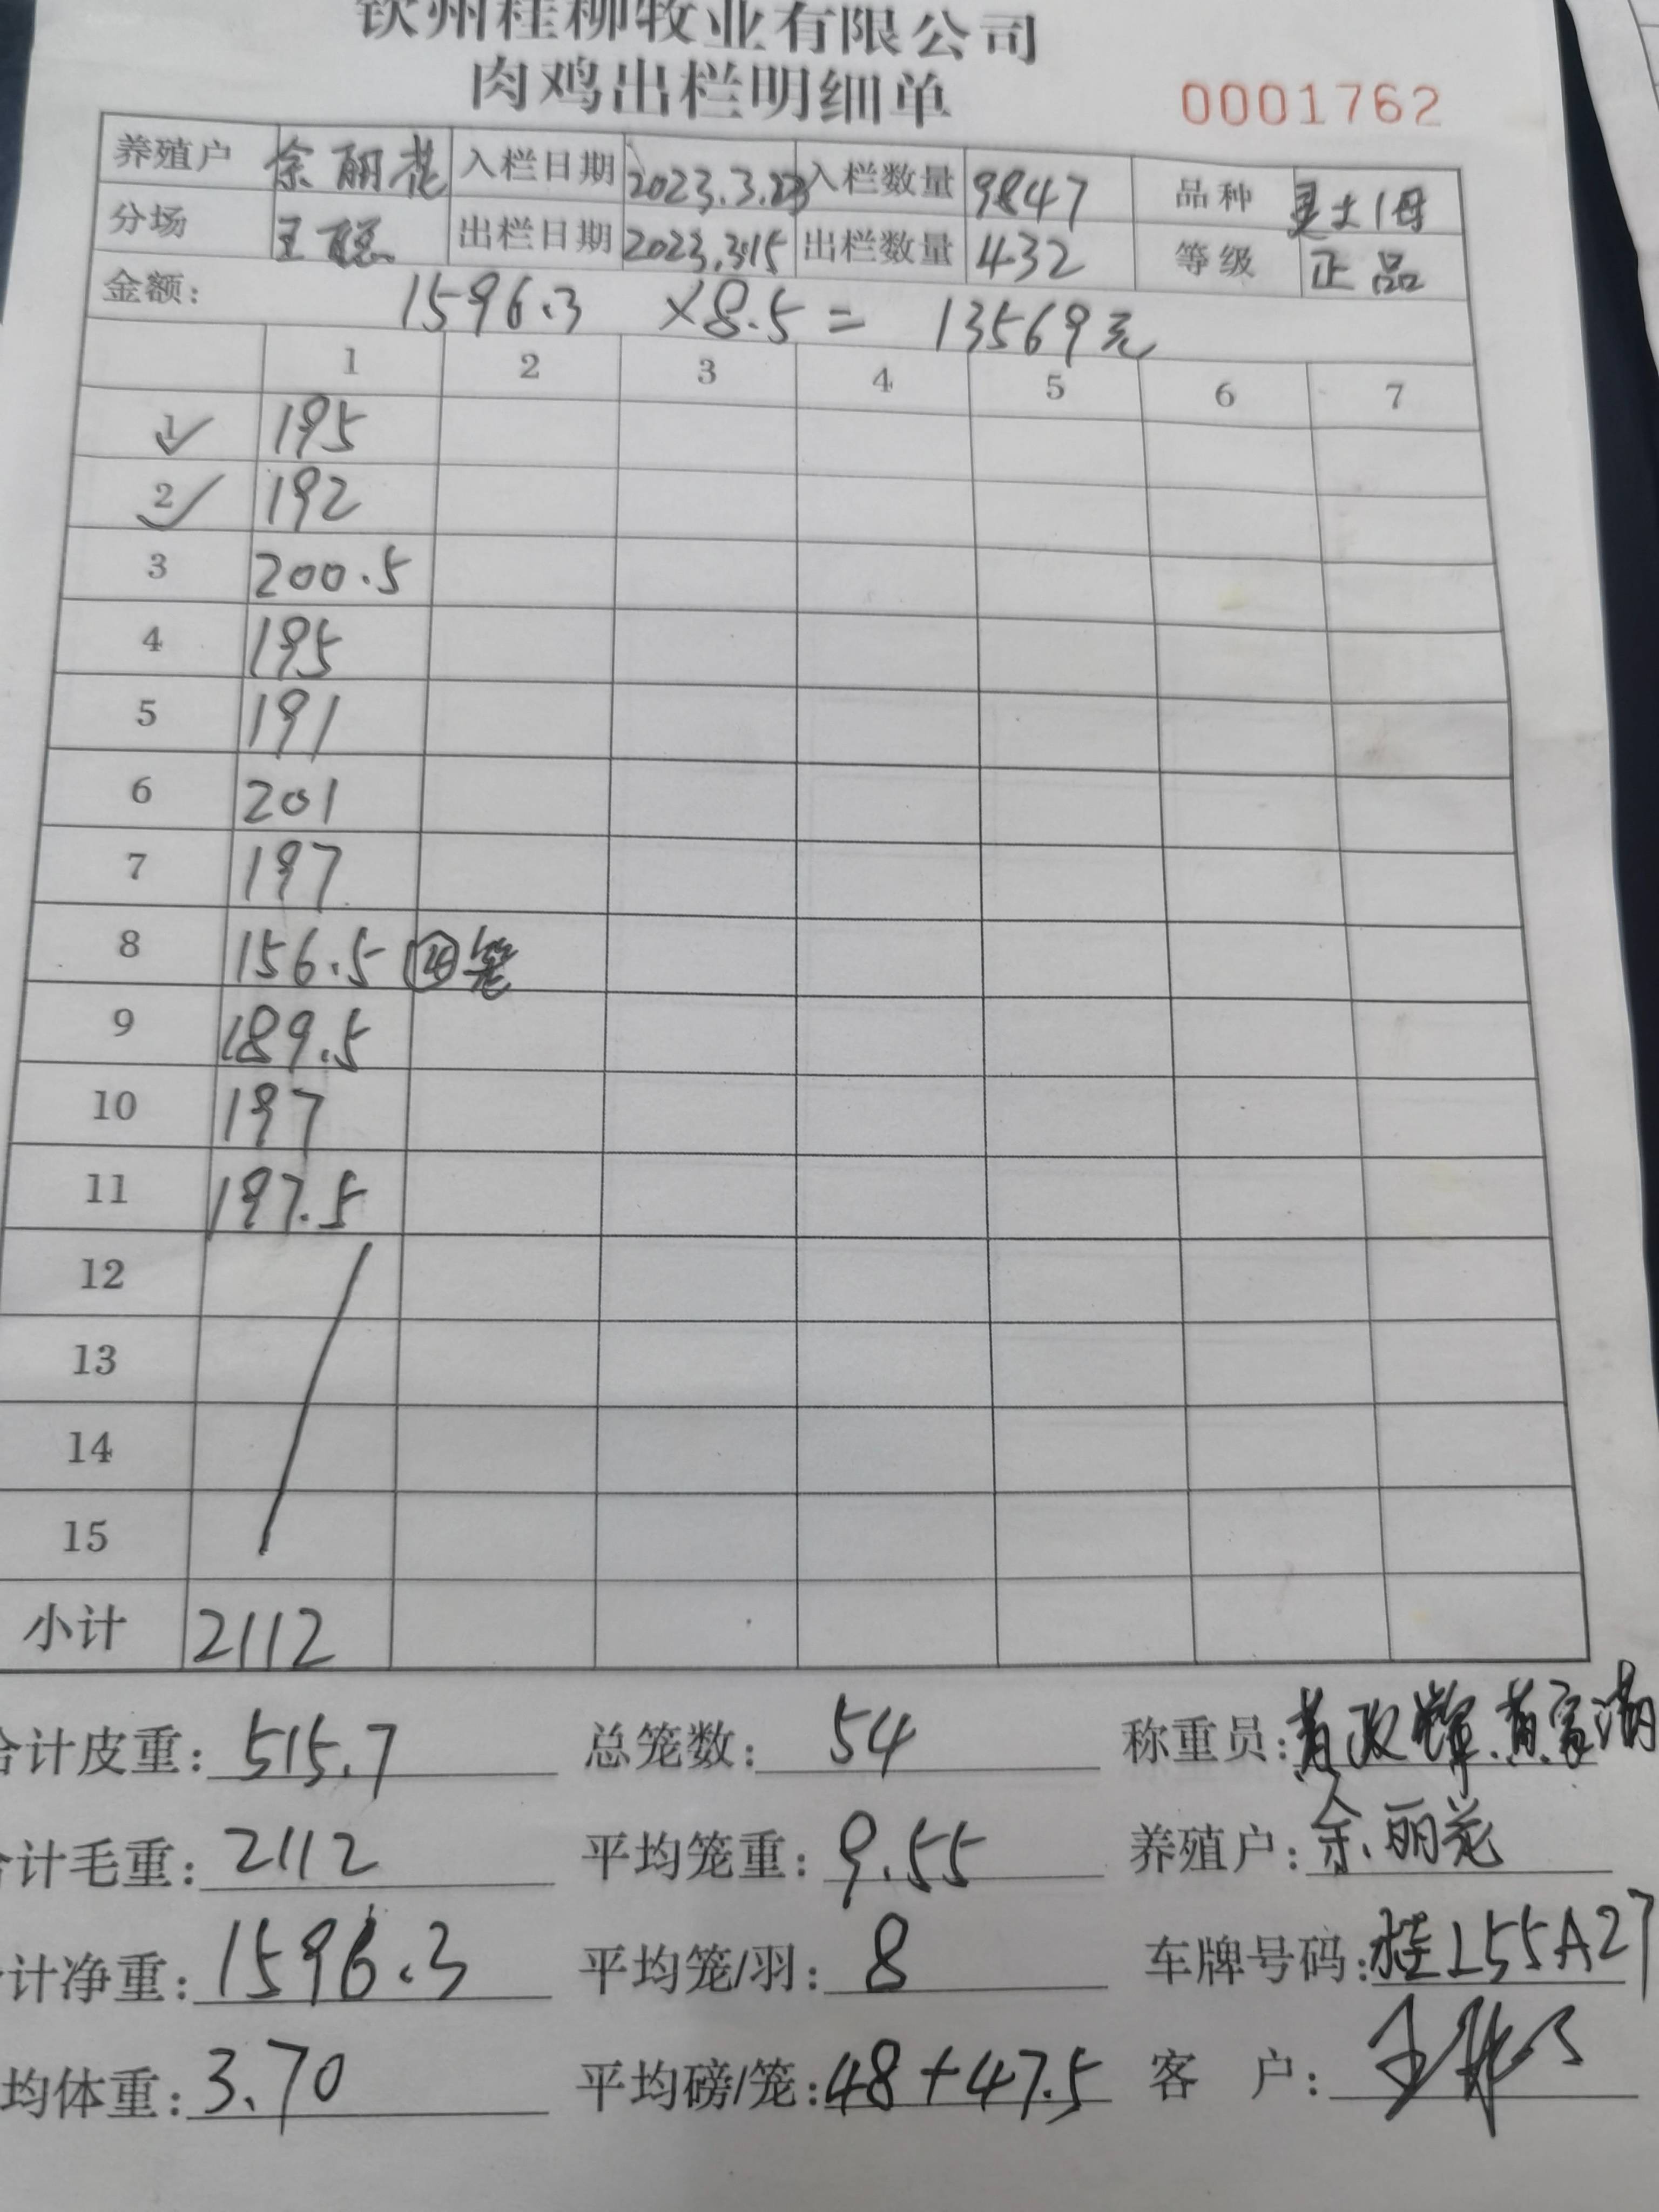 钦州桂柳牧业有限公司
肉鸡出栏明细单 0001762
养殖户 余丽花 入栏日期 入栏数量 9847 品种
分场 王聪 出栏日期 2023.3.15 出栏数量 432 等级 正品
金额: 1596.3 ×8.5= 13569元
1 2 3 4 5 6 7
1 195
2 192
3 200.5
4 195
5 191
6 201
7 197
8 156.5 四笼
9 189.5
10 197
11 197.5
12
13
14
15
小计 2112
合计皮重: 515.7 总笼数: 54 称重员: 黄政辉.黄家满
合计毛重: 2112 平均笼重: 9.55 养殖户: 余丽花
计净重: 1596.3 平均笼/羽: 8 车牌号码: 桂L55A27
均体重: 3.70 平均磅/笼: 48+47.5 客 户: